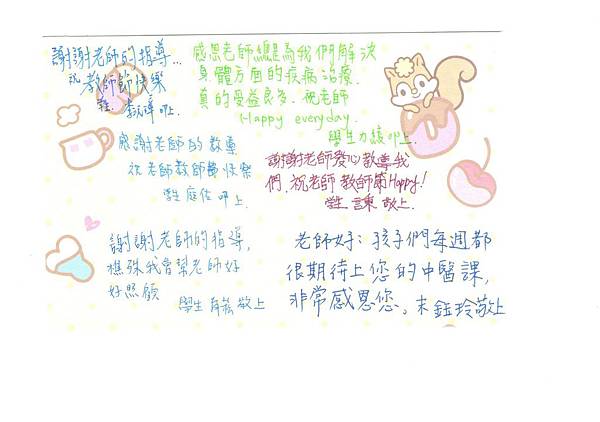 謝謝老師的指導...
祝教師節快樂
敬上
感恩老師總是為我們解決
身體方面的疾病治療.
真的受益良多. 祝老師
Happy everyday.
學生 叩上.
感謝老師的教導
祝老師教師節快樂
學生 庭佐 叩上
謝謝老師愛心教導我
們, 祝老師教師節Happy!
學生 敬上.
謝謝老師的指導,
我會幫老師好
好照顧
學生 敬上
老師好: 孩子們每週都
很期待上您的中醫課,
非常感恩您。 鈺玲敬上